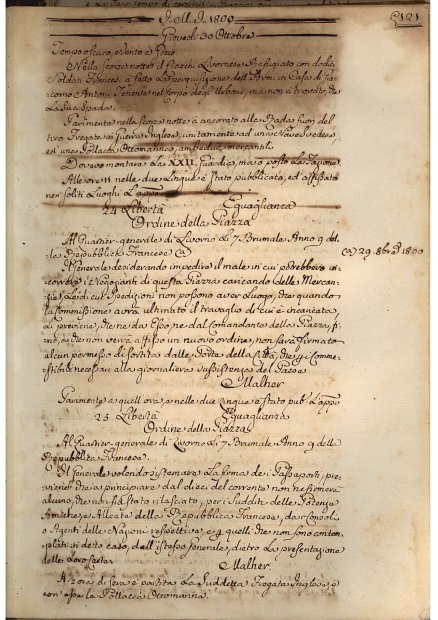 J.M.J. 1800
121
Giovedi 30 Ottobre
Tempo oscuro, e Vento a
Nella scorsa notte il Livornese Refugiato con dodici
Soldati Francesi à fatto la perquisizione dell'Armi in Casa di Gia-
como Antoni Tenente nel Corpo degl'Urbani, ma non à trovato, che
La Sua Spada.
Parimente nella scorsa notte è ancorato alla Spada fuori del
tiro Fregata in Guerra Inglese, unitamente ad una Nave Svedese,
ed una Pollacca Ottomanna, ambedue mercantili.
Doveva montare La XXII. Guardia, ma
Alle ore 11 nelle due Lingue è Stato pubblicato, ed affissato
nei soliti Luoghi L'appo
24 Libertà Eguaglianza
Ordine della Piazza
Al Quartier-generale di Livorno li 7 Brumale Anno 9 del-
la Repubblica Francese (a)
(a) 29. 8bre 1800
Il Generale desiderando impedire il male in cui potrebbero in-
correre i Negozianti di questa Piazza caricando delle Mercan-
zie, le di cui Spedizioni non possono aver Luogo, che quando
la Commissione avrà ultimato il travaglio di cui è incaricata
di previene, che ne da Esso, ne dal Comandante della Piazza, fi-
no, a che non verrà affisso un nuovo ordine, non sarà firmato
alcun permesso di sortita dalle Porte della Città, che
necessari alla giornaliera Sussistenza del Paese
Malher
Parimente a quell'ora, e nelle due Lingue è stato pub.º L'appo
25 Libertà Eguaglianza
Ordine della Piazza
Al Quartier-generale di Livorno li 7 Brumale Anno 9 della
Repubblica Francese.
Il Generale volendo sistemare La firma de' Passaporti, pre-
viene che a principiare dal dieci del corrente non ne firmerà
alcuno, che non sia stato rilasciato, per i Sudditi delle Potenze
Amiche, e Alleate della Repubblica Francese, da' Consoli,
o Agenti delle Nazioni respettive, e per quelli che non sono contem-
plati in detto caso, dell'istesso Generale, dietro la presentazione
delle Loro Carte.
Malher.
A 2 ore di sera è partita La Suddetta Fregata Inglese, e
con essa La Pollacca Ottomanna.